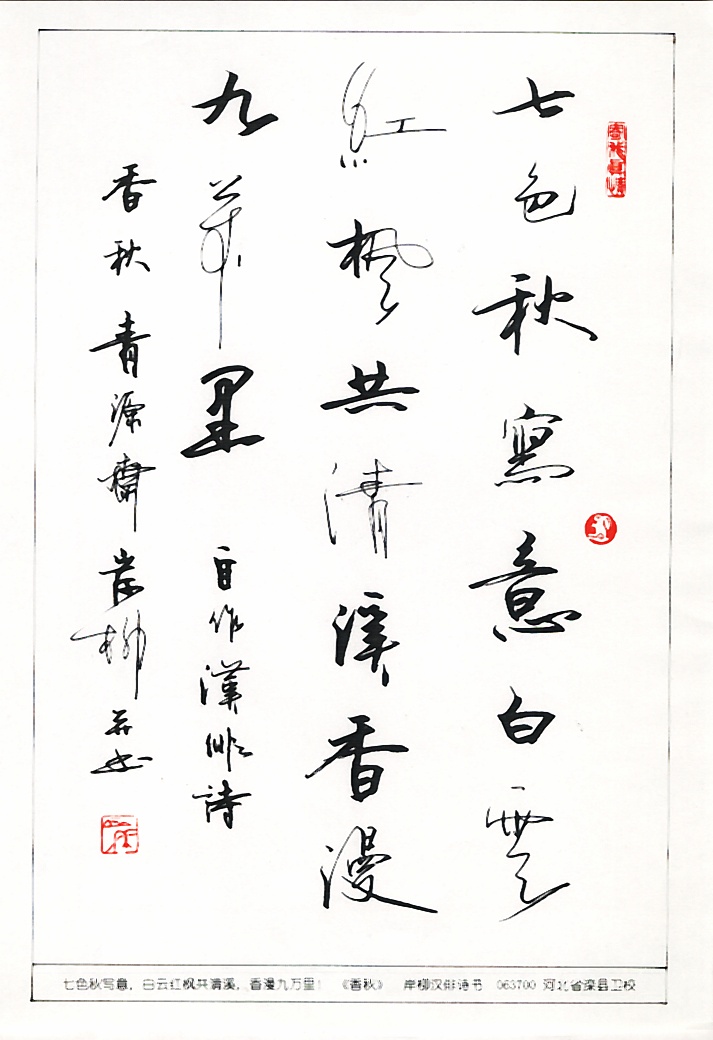 七色秋寫意白雲
紅楓共清溪香漫
九萬里
自作漢俳詩
香秋 青源齋岸柳并書
七色秋写意，白云红枫共清溪，香漫九万里！ 《香秋》 岸柳汉俳诗书 063700 河北省滦县卫校